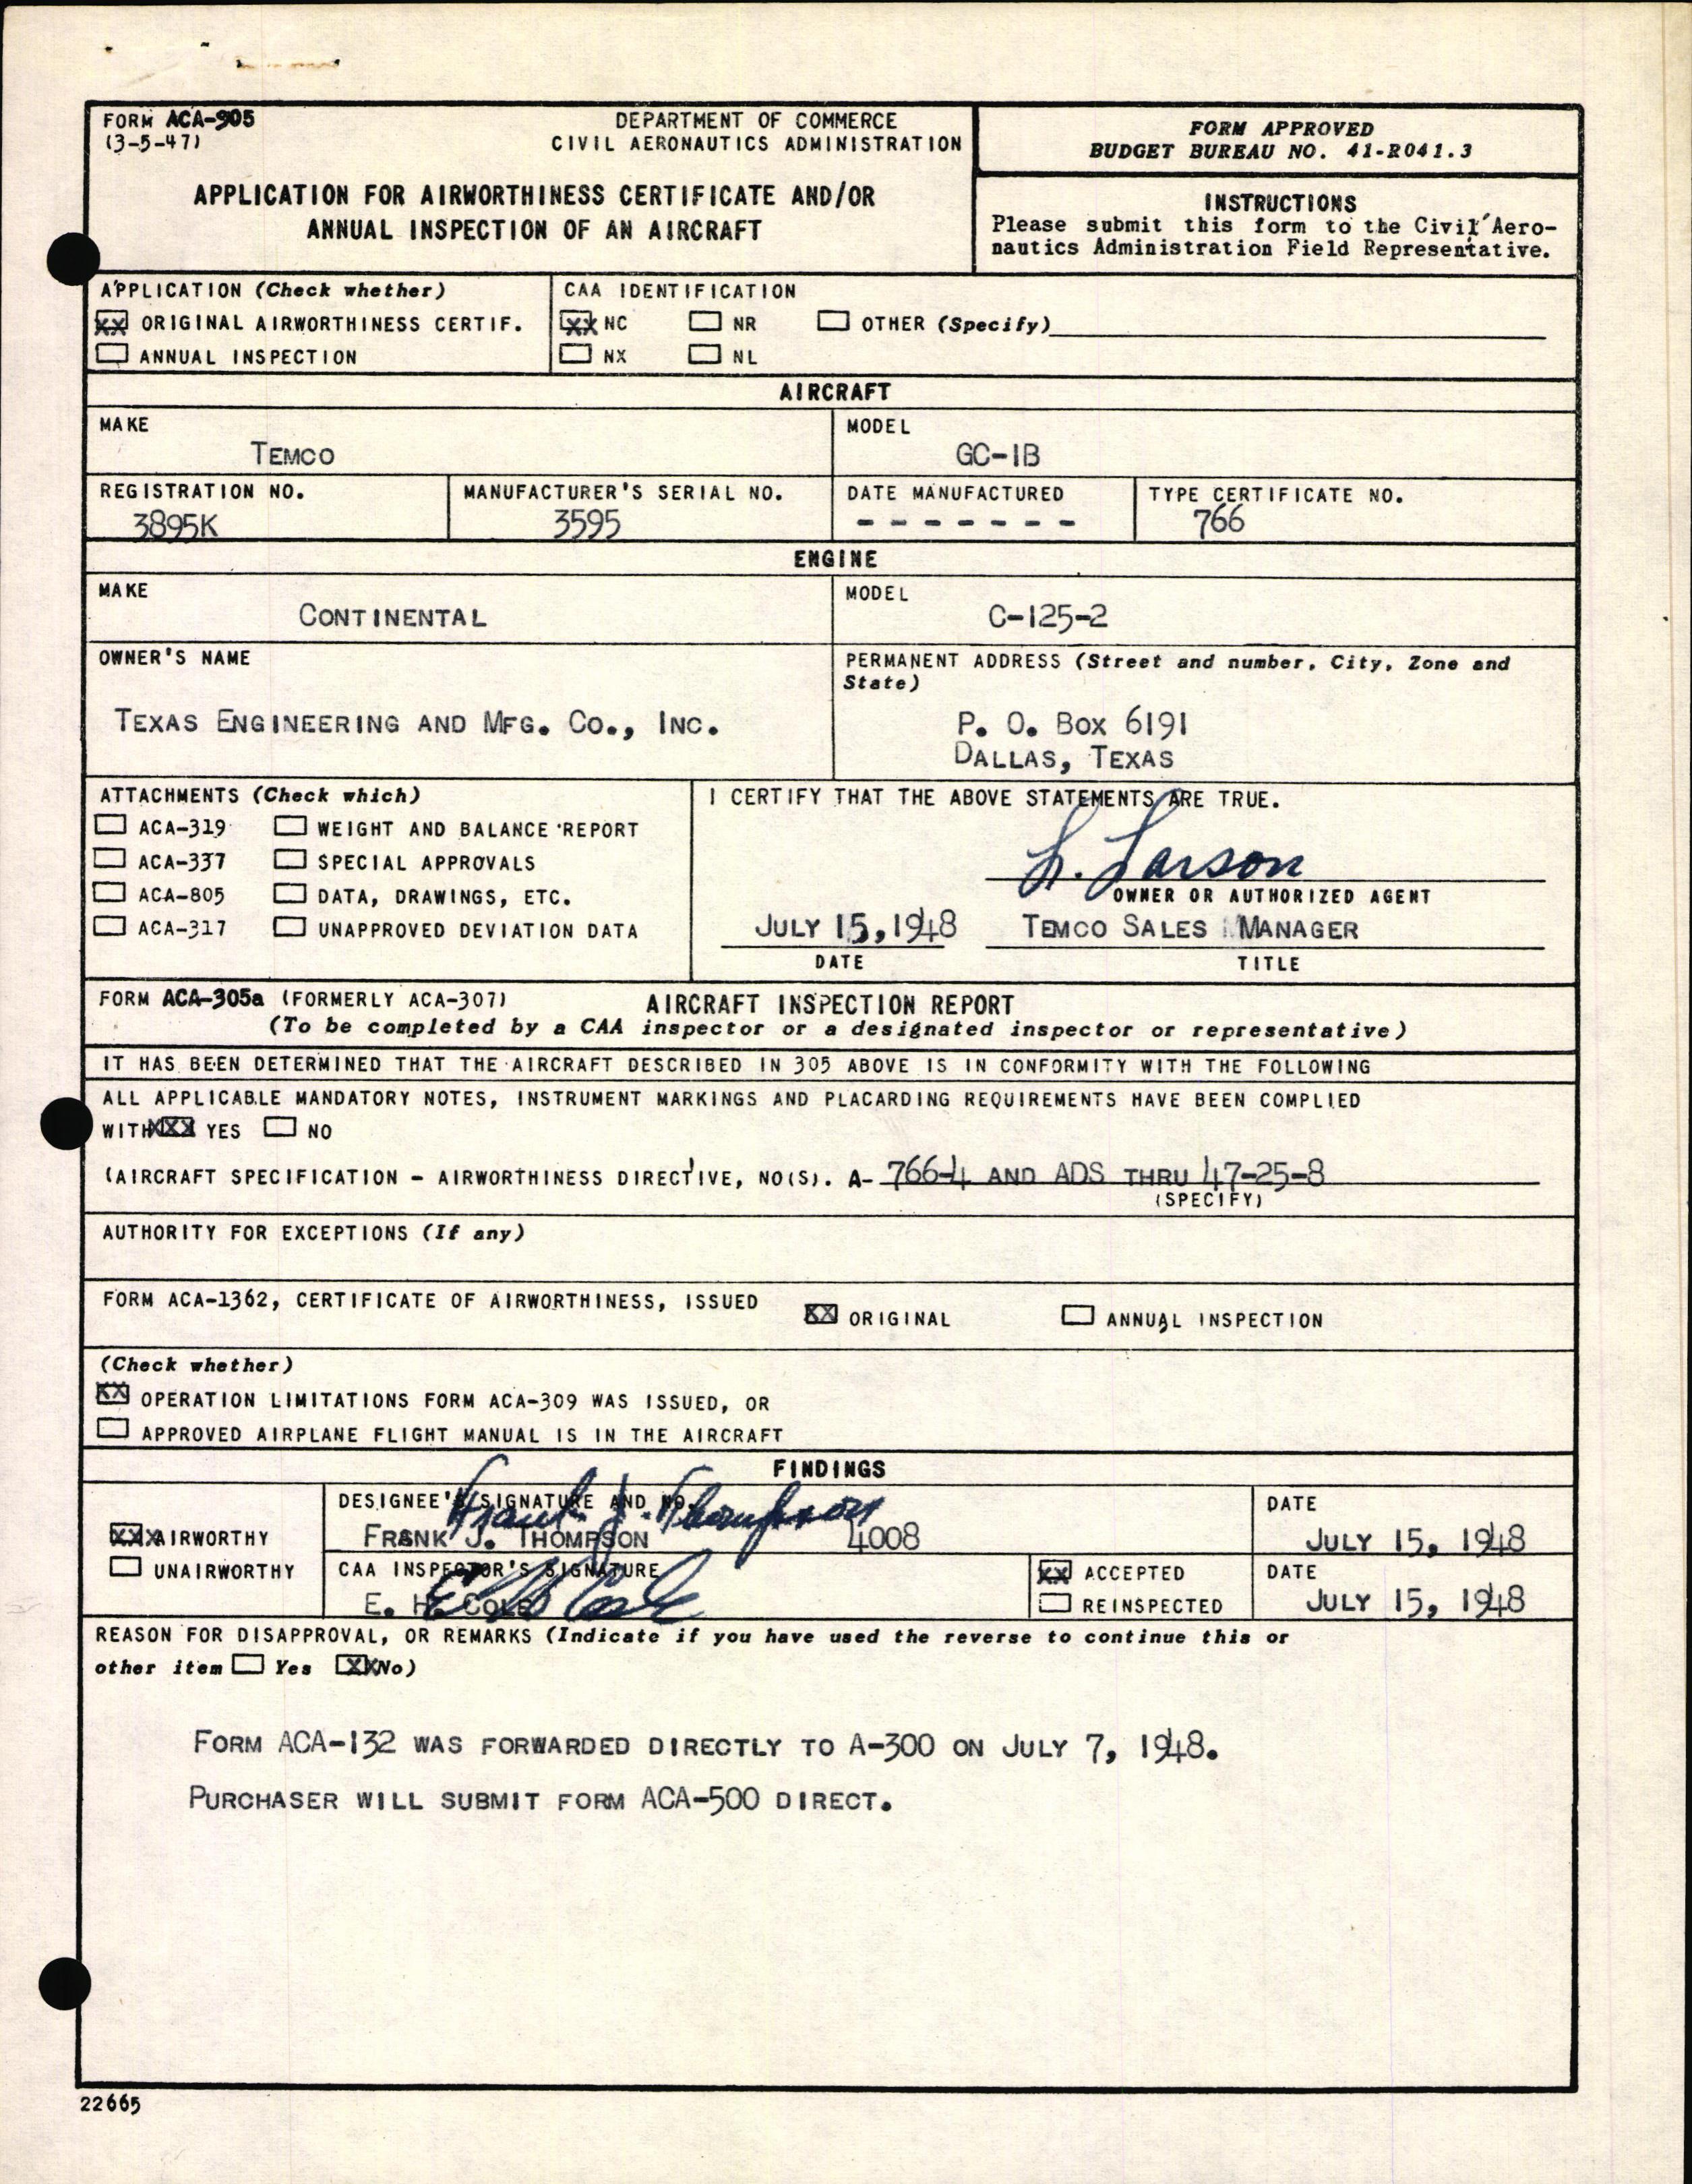 FORM ACA-905
(3-5-47)
DEPARTMENT OF COMMERCE
CIVIL AERONAUTICS ADMINISTRATION
APPLICATION FOR AIRWORTHINESS CERTIFICATE AND/OR
ANNUAL INSPECTION OF AN AIRCRAFT
FORM APPROVED
BUDGET BUREAU NO. 41-R041.3
INSTRUCTIONS
Please submit this form to the Civil Aero-
nautics Administration Field Representative.
APPLICATION (Check whether)
XX ORIGINAL AIRWORTHINESS CERTIF.
ANNUAL INSPECTION
CAA IDENTIFICATION
XX NC NR OTHER (Specify)
NX NL
AIRCRAFT
MAKE
TEMCO
MODEL
GC-1B
REGISTRATION NO.
3895K
MANUFACTURER'S SERIAL NO.
3595
DATE MANUFACTURED
- - - - - - -
TYPE CERTIFICATE NO.
766
ENGINE
MAKE
CONTINENTAL
MODEL
C-125-2
OWNER'S NAME
TEXAS ENGINEERING AND MFG. CO., INC.
PERMANENT ADDRESS (Street and number, City, Zone and
State)
P. O. BOX 6191
DALLAS, TEXAS
ATTACHMENTS (Check which)
ACA-319 WEIGHT AND BALANCE REPORT
ACA-337 SPECIAL APPROVALS
ACA-805 DATA, DRAWINGS, ETC.
ACA-317 UNAPPROVED DEVIATION DATA
I CERTIFY THAT THE ABOVE STATEMENTS ARE TRUE.
L. Larson
OWNER OR AUTHORIZED AGENT
JULY 15, 1948 TEMCO SALES MANAGER
DATE TITLE
FORM ACA-305a (FORMERLY ACA-307) AIRCRAFT INSPECTION REPORT
(To be completed by a CAA inspector or a designated inspector or representative)
IT HAS BEEN DETERMINED THAT THE AIRCRAFT DESCRIBED IN 305 ABOVE IS IN CONFORMITY WITH THE FOLLOWING
ALL APPLICABLE MANDATORY NOTES, INSTRUMENT MARKINGS AND PLACARDING REQUIREMENTS HAVE BEEN COMPLIED
WITH XXX YES NO
(AIRCRAFT SPECIFICATION - AIRWORTHINESS DIRECTIVE, NO(S). A- 766-4 AND ADS THRU 47-25-8
(SPECIFY)
AUTHORITY FOR EXCEPTIONS (If any)
FORM ACA-1362, CERTIFICATE OF AIRWORTHINESS, ISSUED XX ORIGINAL ANNUAL INSPECTION
(Check whether)
XX OPERATION LIMITATIONS FORM ACA-309 WAS ISSUED, OR
APPROVED AIRPLANE FLIGHT MANUAL IS IN THE AIRCRAFT
FINDINGS
XXX AIRWORTHY
UNAIRWORTHY
DESIGNEE'S SIGNATURE AND NO.
Frank J. Thompson
FRANK J. THOMPSON 4008
DATE
JULY 15, 1948
CAA INSPECTOR'S SIGNATURE
E. H. Cole
E. H. COLE
XX ACCEPTED
REINSPECTED
DATE
JULY 15, 1948
REASON FOR DISAPPROVAL, OR REMARKS (Indicate if you have used the reverse to continue this or
other item Yes XX No)
FORM ACA-132 WAS FORWARDED DIRECTLY TO A-300 ON JULY 7, 1948.
PURCHASER WILL SUBMIT FORM ACA-500 DIRECT.
22665